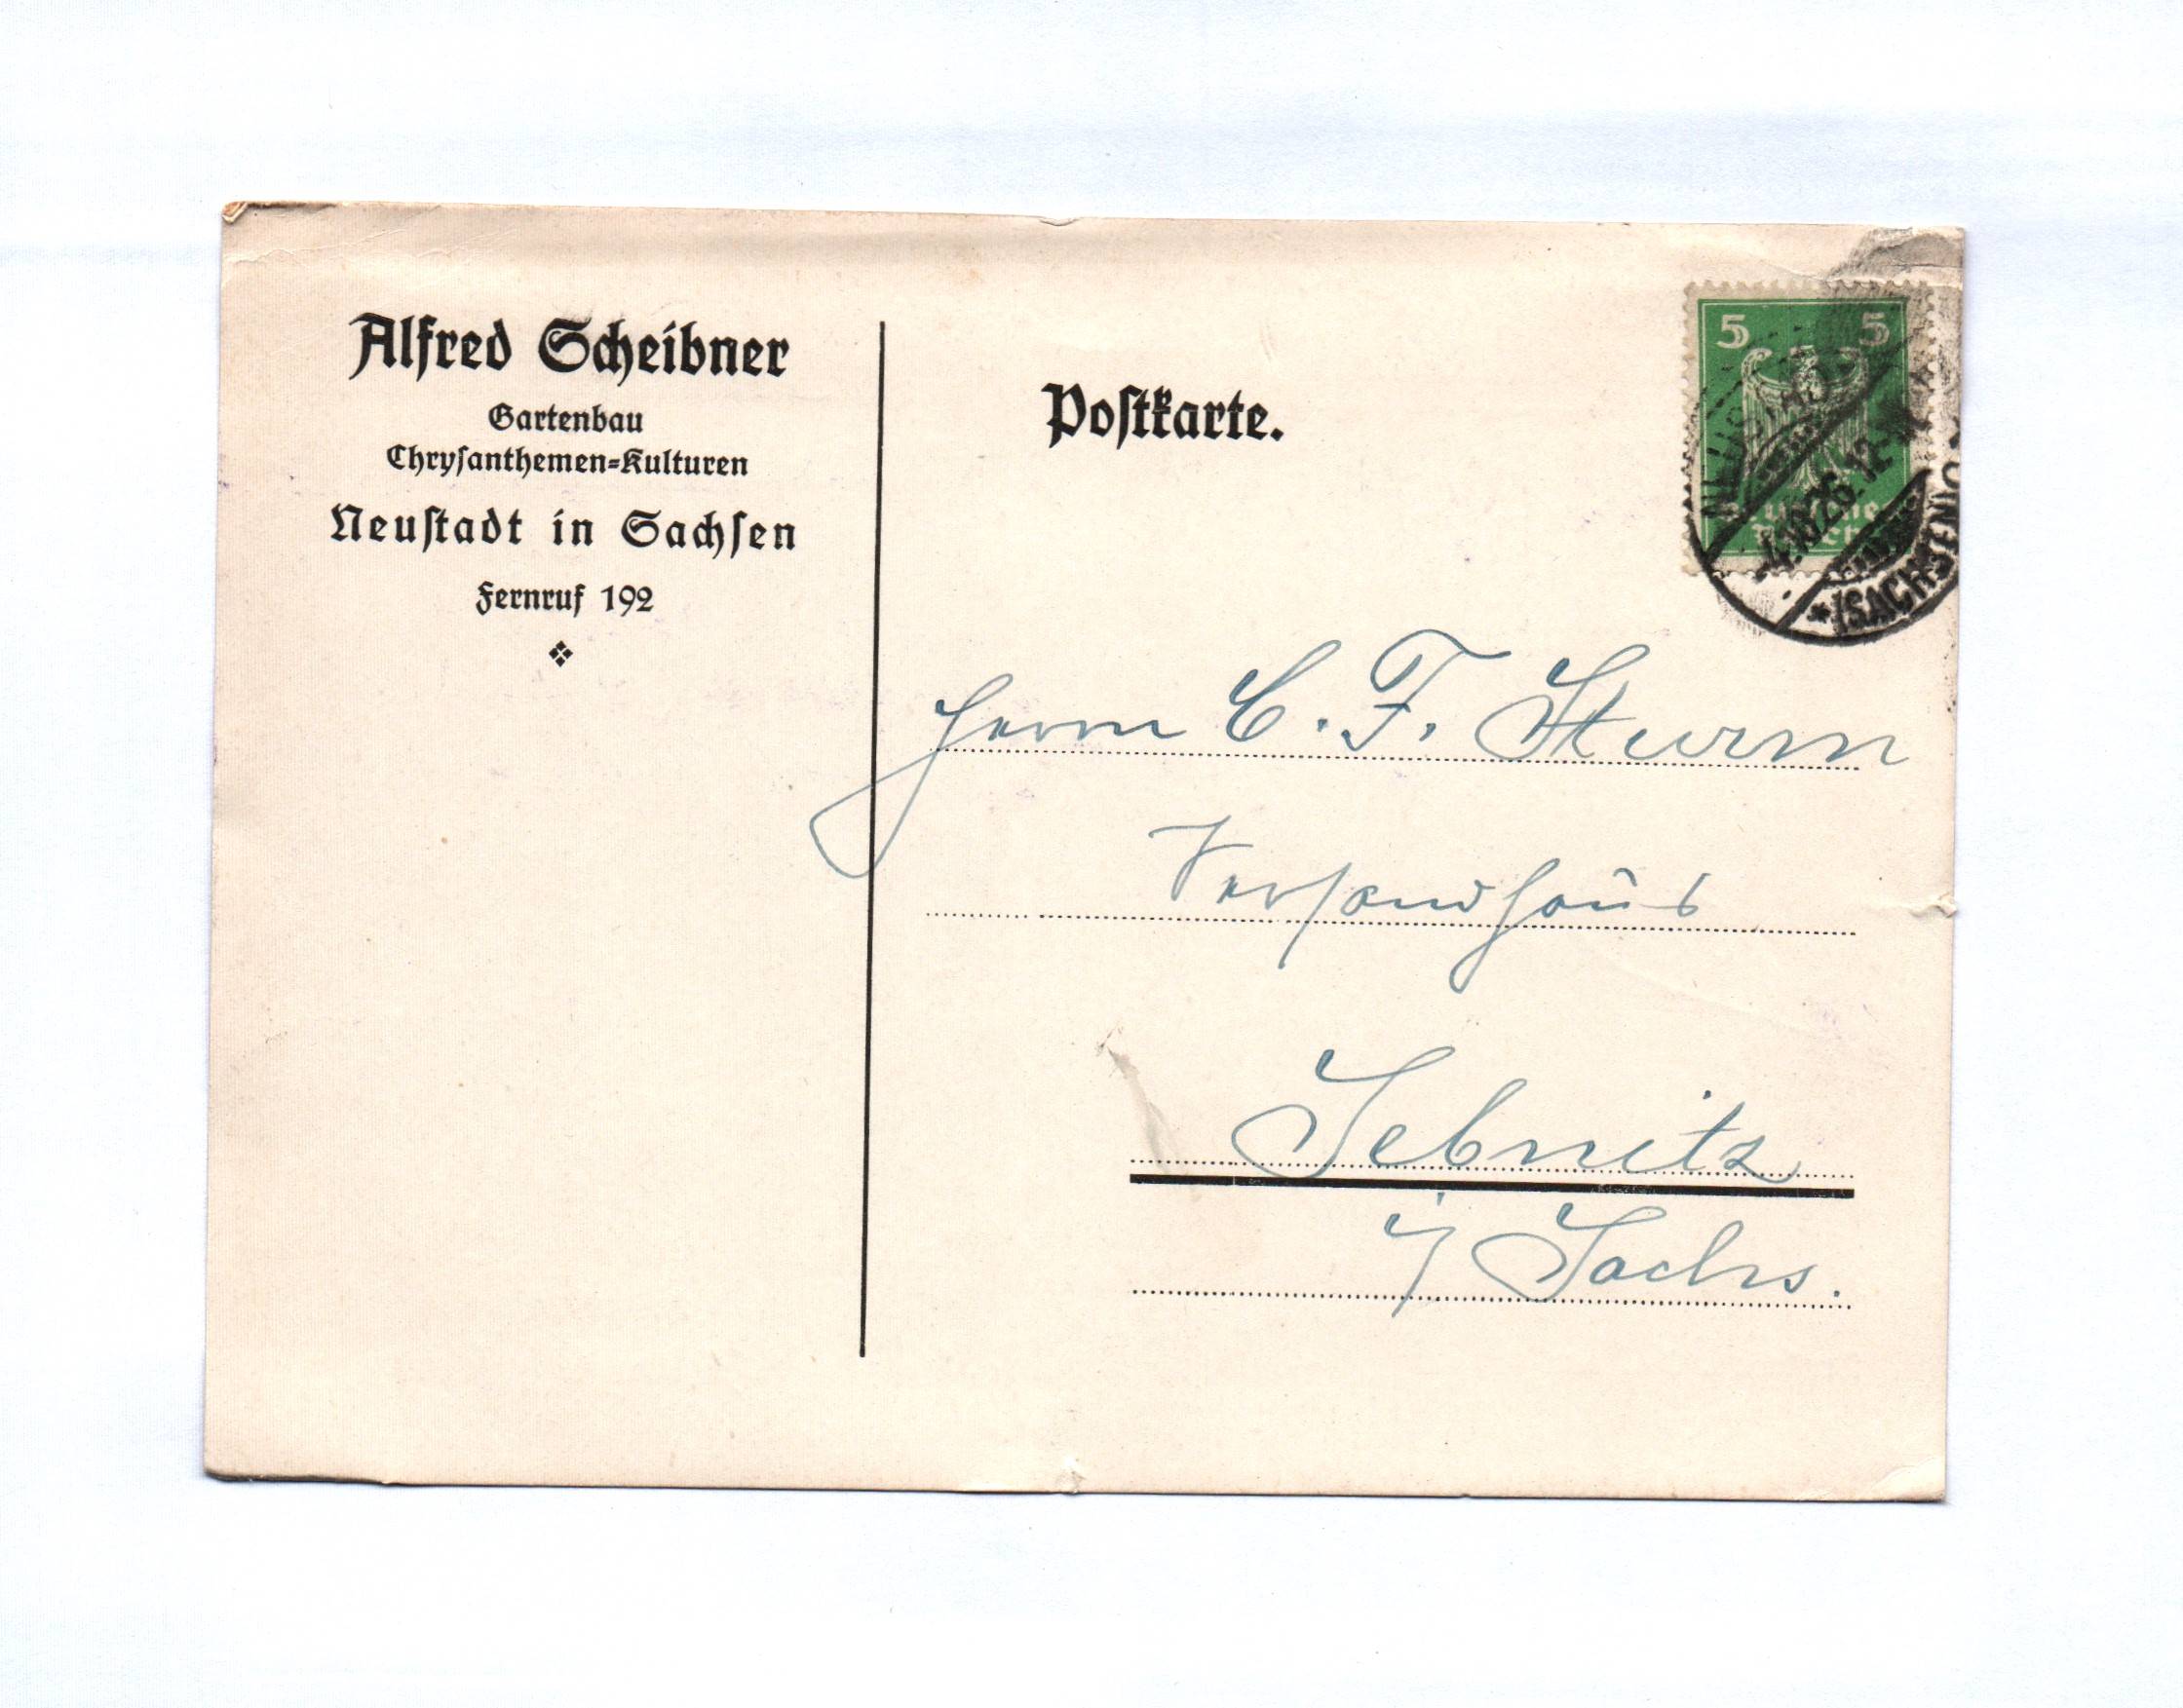 Alfred Scheibner
Gartenbau
Chrysanthemen=Kulturen
Neustadt in Sachsen
Fernruf 192
Postkarte.
5 5
NEUSTADT
26.12
*(SACHSEN)
Herrn C. F. Sturm
Versandhaus
Sebnitz
i/ Sachs.